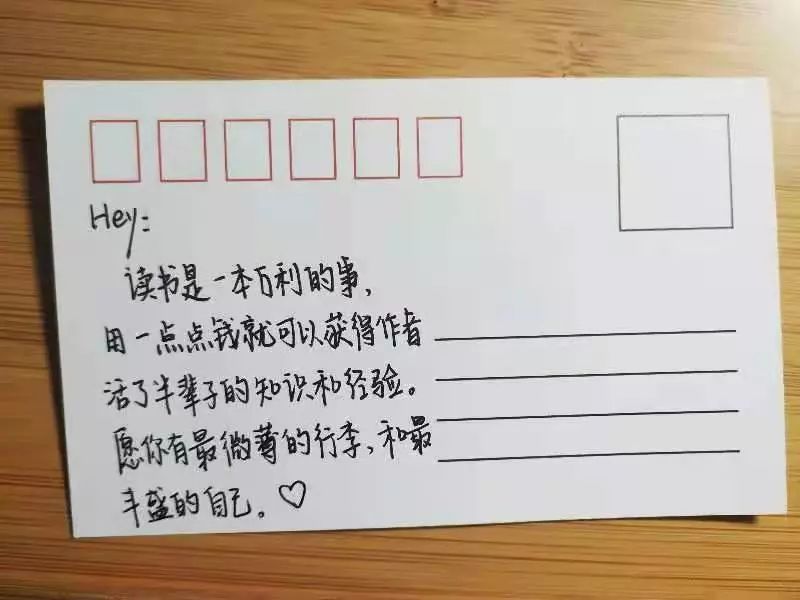 Hey:
读书是一本万利的事,
用一点点钱就可以获得作者
活了半辈子的知识和经验。
愿你有最微薄的行李,和最
丰盛的自己。♡